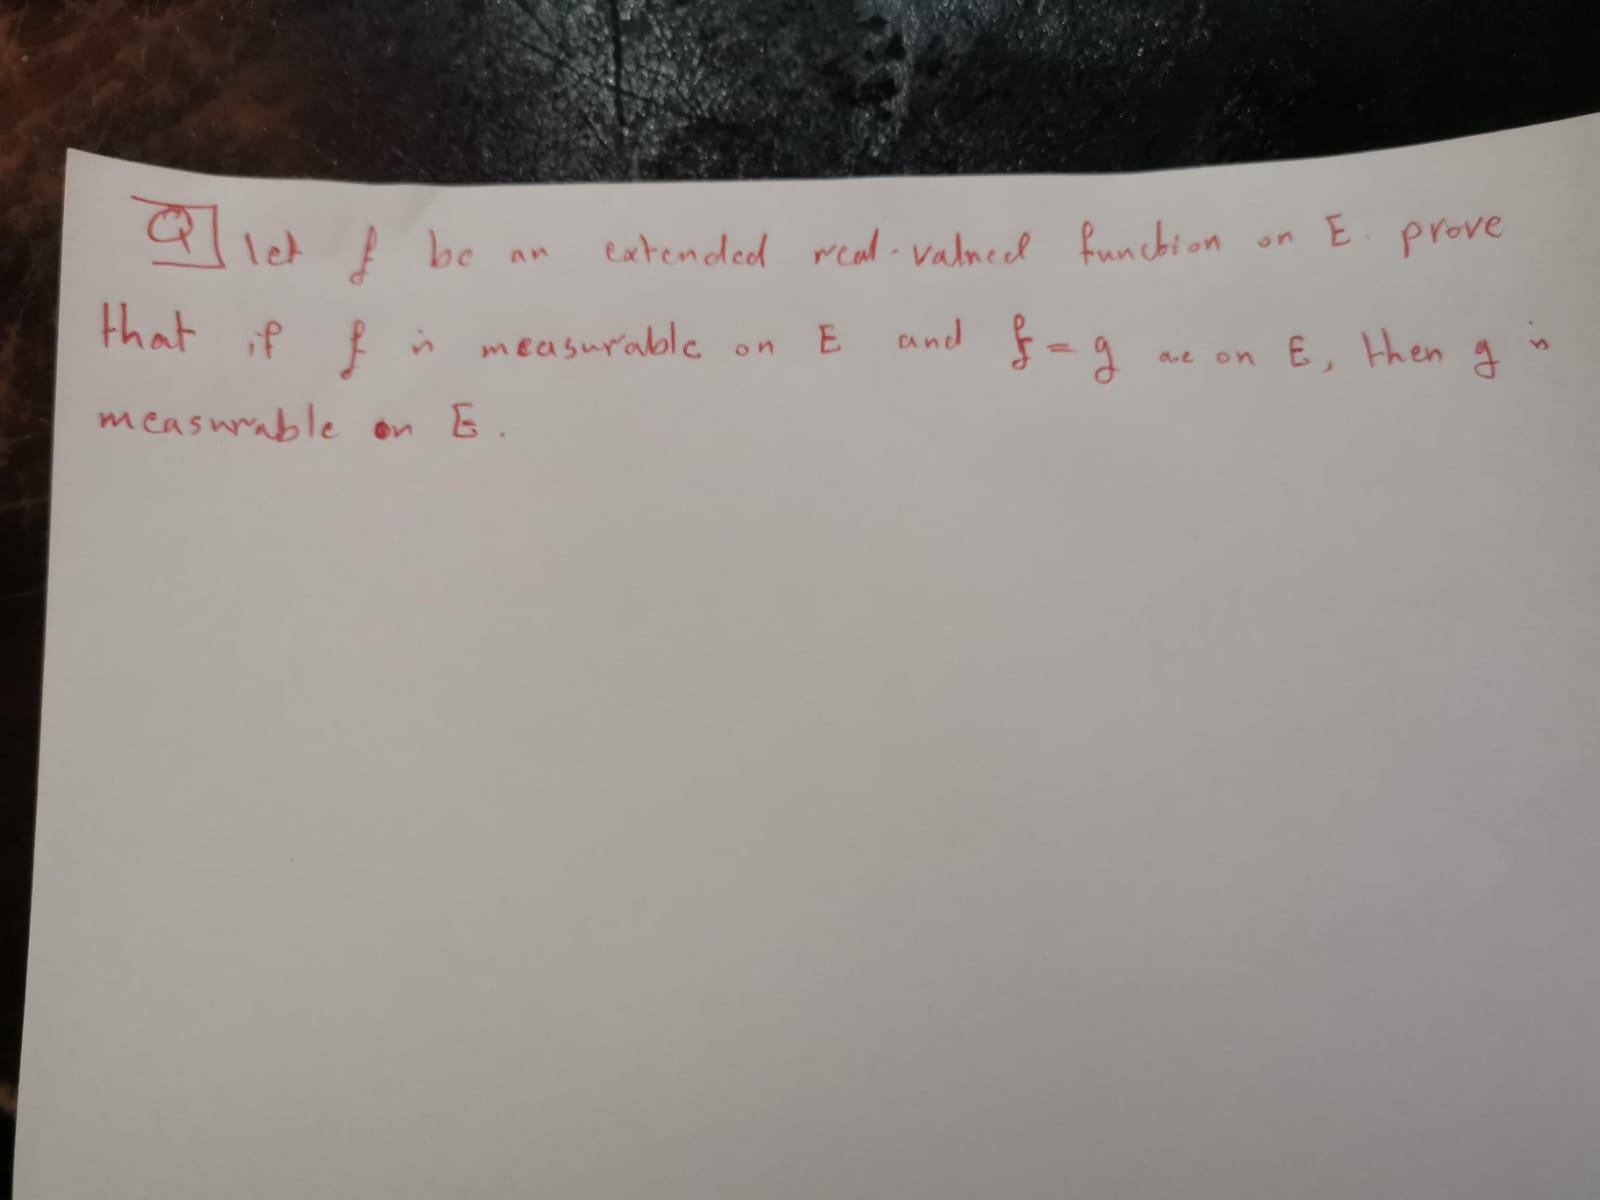 Q let f be an extended real-valued function on E. prove
that if f is measurable on E and f = g a.e on E, then g is
measurable on E.